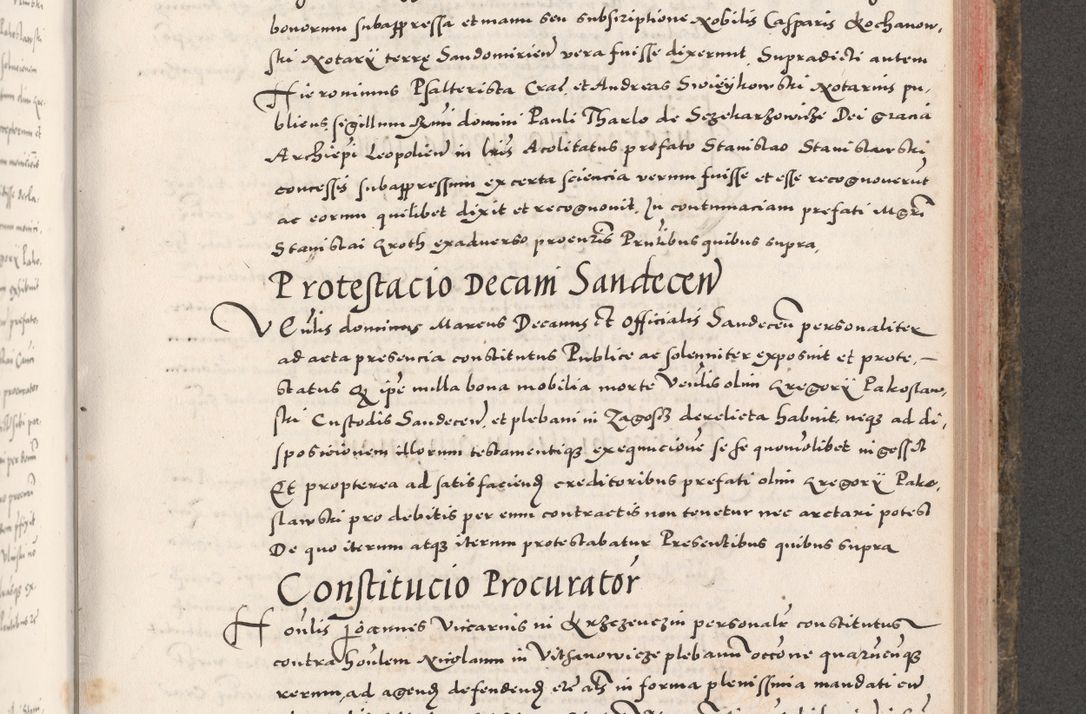 bonorum subappressa et manu seu subscriptione Nobilis Casparis Kochanow,
ski Notarÿ terrę Sandomirien vera fuisse dixerunt, Supradicti autem
Hieronimus Psalterista Crac et Andreas Swieÿkowski Notarius pu,
blicus, sigillum Rmi domini Pauli Tharlo de Sczekarzowicze Dei gracia
Archiepi Leopolien in lris Acolitatus prefato Stanislao Stanislawski
concessis subappressum ex certa sciencia verum fuisse et esse recognoverut
ac eorum quilibet dixit et recognovit, In contumaciam prefati Mgri
Stanislai Kroth ex adverso Pntibus quibus supra,
Protestacio Decani Sandecen
VEnlis dominus Marcus Decanus et Officialis Sandecen personaliter
ad acta presencia constitutus Publice ac solenniter exposuit et prote,
status q ipe nulla bona mobilia morte Venlis olim Gregorÿ Pakoslaw,
ski Custodis Sandecen, et plebani in Zagosz derelicta habuit, neqz ad di,
sposicionem illorum testamentiqz exequucione se se quomolibet ingessit
Et propterea ad satisfaciend creditoribus prefati olim Gregorÿ Pako,
slawski pro debitis per eum contractis non tenetur nec arctari potest
De quo iterum atqz iterum protestabatur Presentibus quibus supra
Constitucio Procurator
Honlis Joannes Vicarius in Krzczenczin personalr constitutus
contra honlem Nicolaum in Vithanowicze plebanu occone quarucuqz
rerum, ad agend defendend etc als in forma plenissima mandati cu